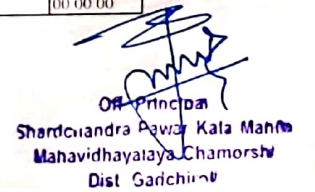 00 00 00
Off Principal
Shardchandra Pawar Kala Mahila
Mahavidhayalaya Chamorshi
Dist Gadchiroli